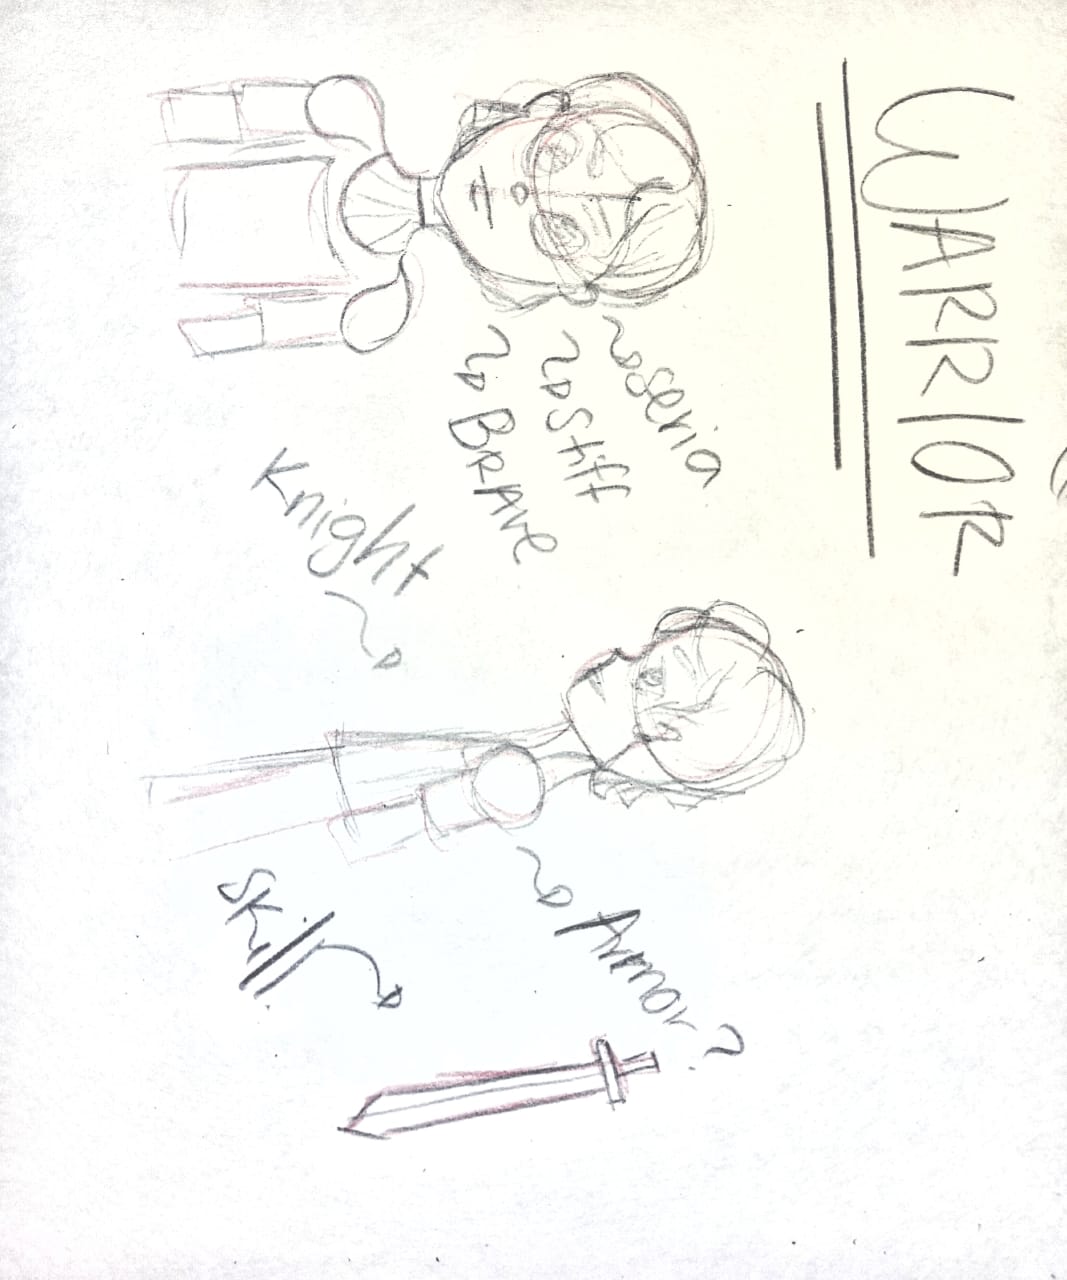 WARRIOR
seria
stiff
BRAVE
Knight
Armor?
skill.